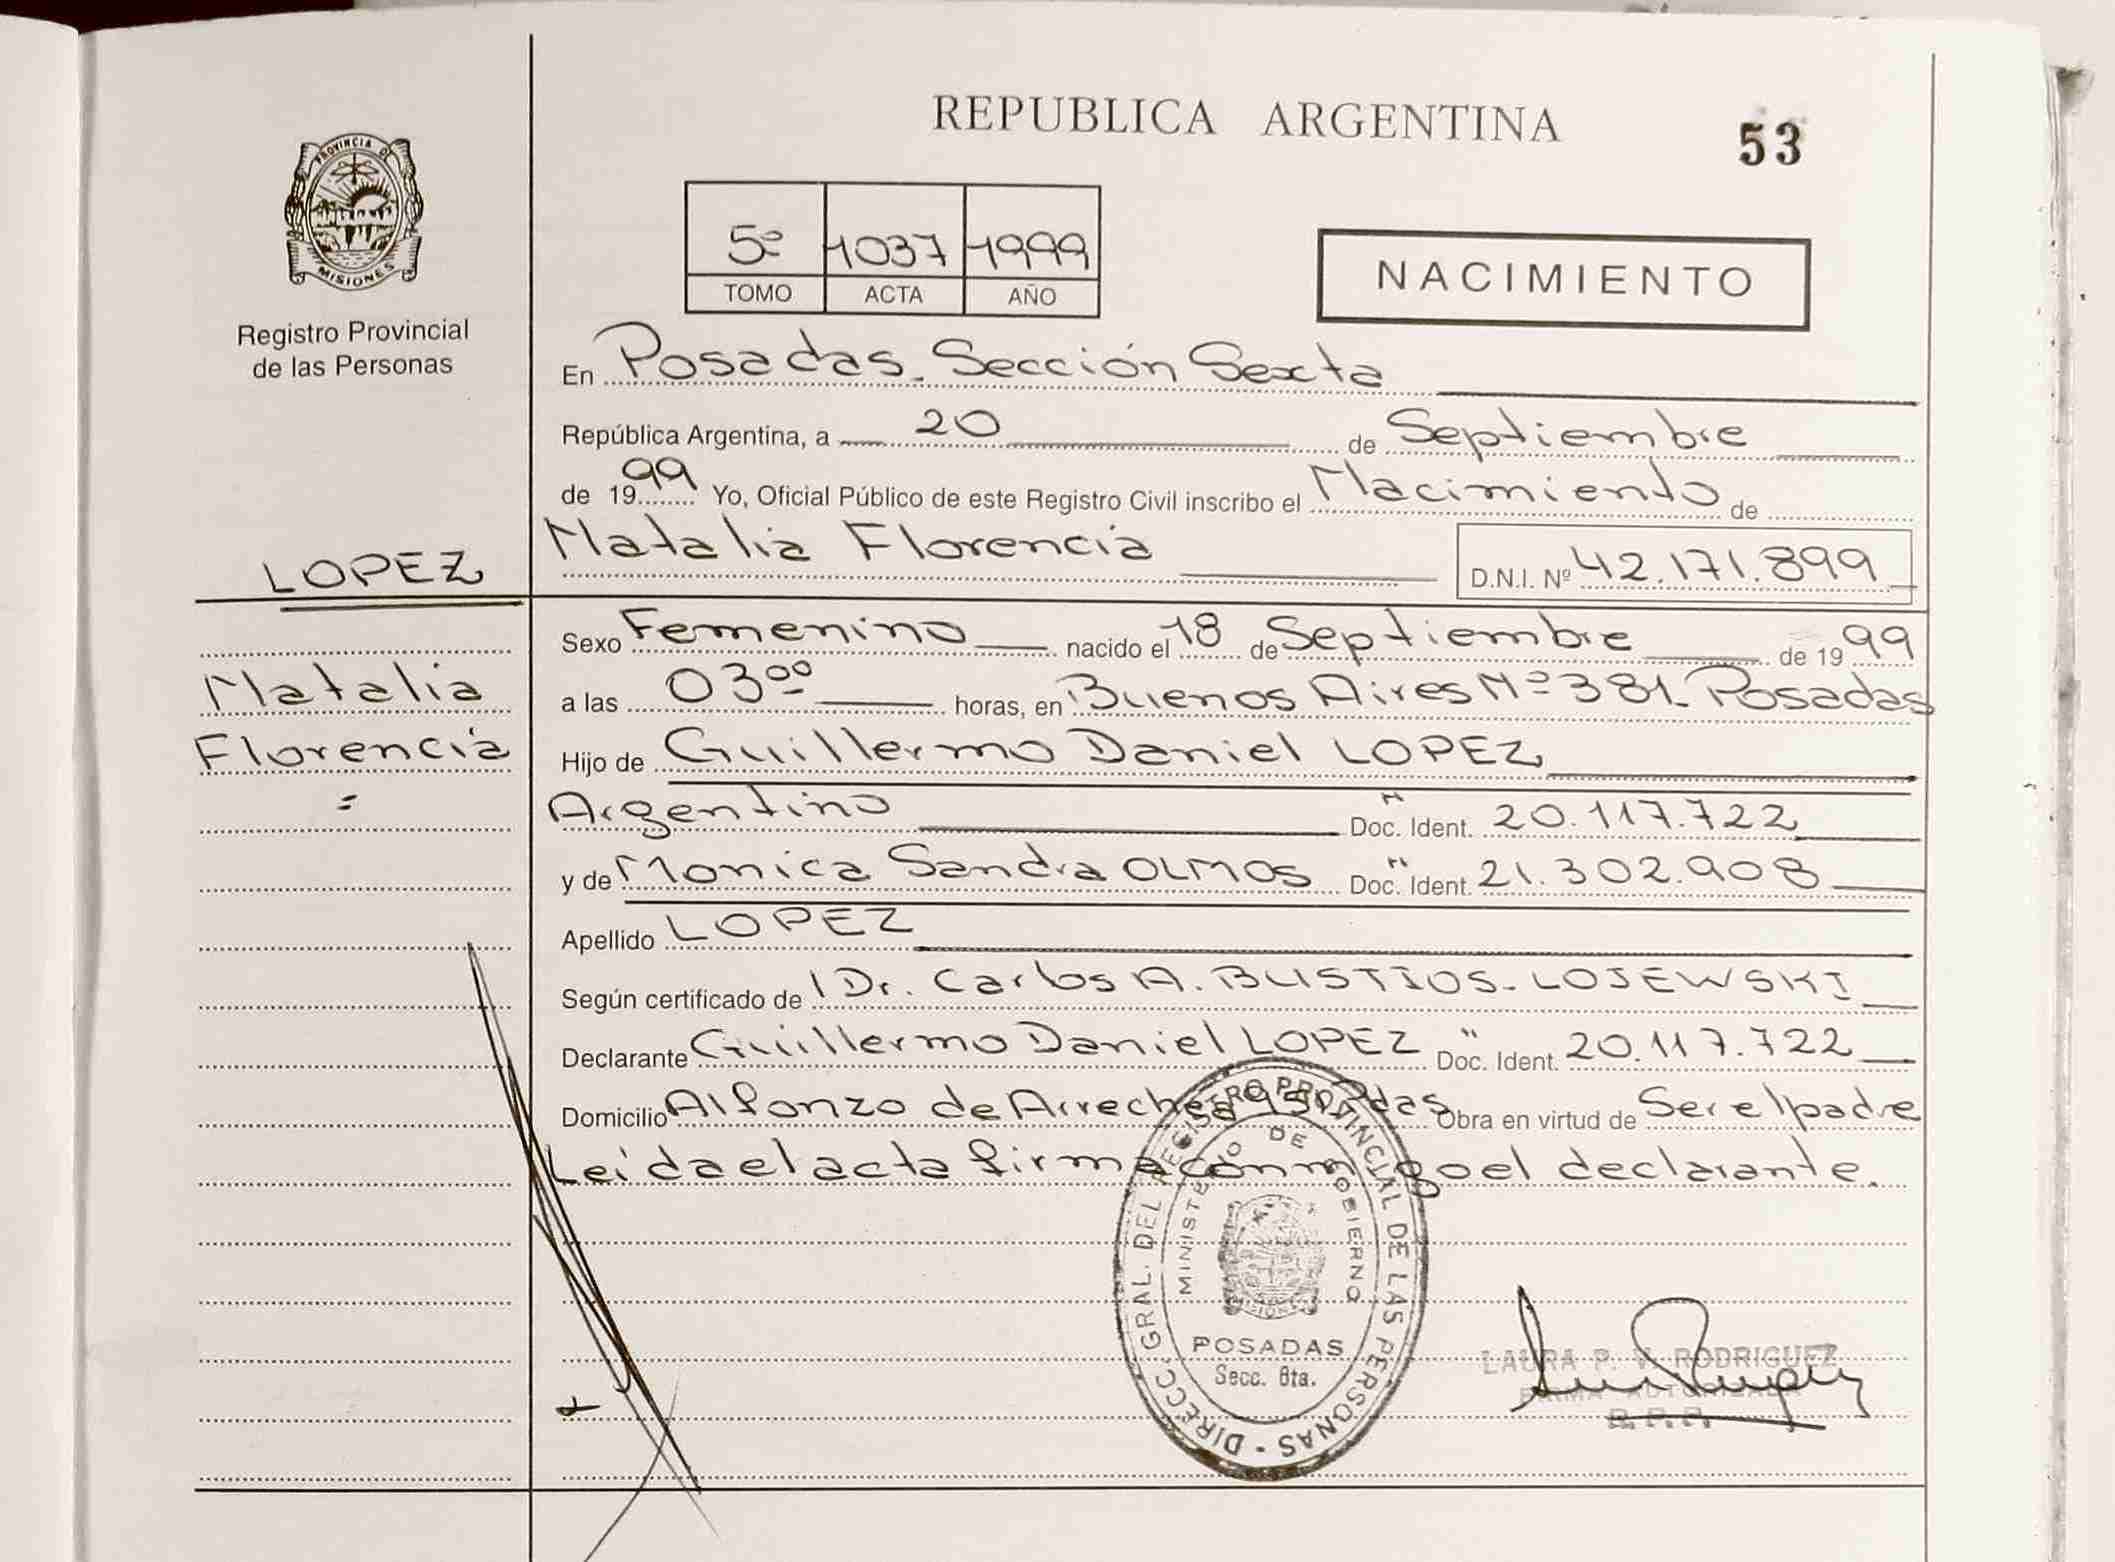 REPUBLICA ARGENTINA
53
PROVINCIA DE
MISIONES
Registro Provincial
de las Personas
5º 1037 1999
TOMO ACTA AÑO
NACIMIENTO
En Posadas. Sección Sexta
República Argentina, a 20 de Septiembre
de 1999 Yo, Oficial Público de este Registro Civil inscribo el Nacimiento de
Natalia Florencia D.N.I. Nº 42.171.899
LOPEZ
Natalia
Florencia
=
Sexo Femenino nacido el 18 de Septiembre de 1999
a las 03ºº horas, en Buenos Aires Nº 381. Posadas
Hijo de Guillermo Daniel LOPEZ
Argentino Doc. Ident. 20.117.722
y de Monica Sandra OLMOS Doc. Ident. 21.302.908
Apellido LOPEZ
Según certificado de Dr. Carlos A. BUSTIOS-LOJEWSKI
Declarante Guillermo Daniel LOPEZ " Doc. Ident. 20.117.722
Domicilio Alfonzo de Arrechea Pdas Obra en virtud de Ser el padre
Leida el acta firma conmigo el declarante.
DIRECC. GRAL. DEL REGISTRO PROVINCIAL DE LAS PERSONAS
MINISTERIO DE GOBIERNO
MISIONES
POSADAS
Secc. 6ta.
LAURA P. V. RODRIGUEZ
FIRMA AUTORIZADA
R.P.P.